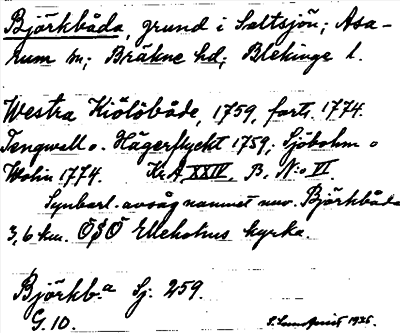 Björkbåda, grund i Saltsjön; Asa-
rum sn; Bräkne hd; Blekinge l.
Westra Kiölöbåde, 1759, forts. 1774.
Tengwall o. Hägerflyckt 1759; Sjöbohm o
Wolin 1774. Kr. A. XXIV. B. N:o VI.
Synbarl. avsåg namnet nuv. Björkbåda
3,6 km. ÖSÖ Elleholms kyrka.
Björkb.a Sj. 259.
G. 10. 1935.